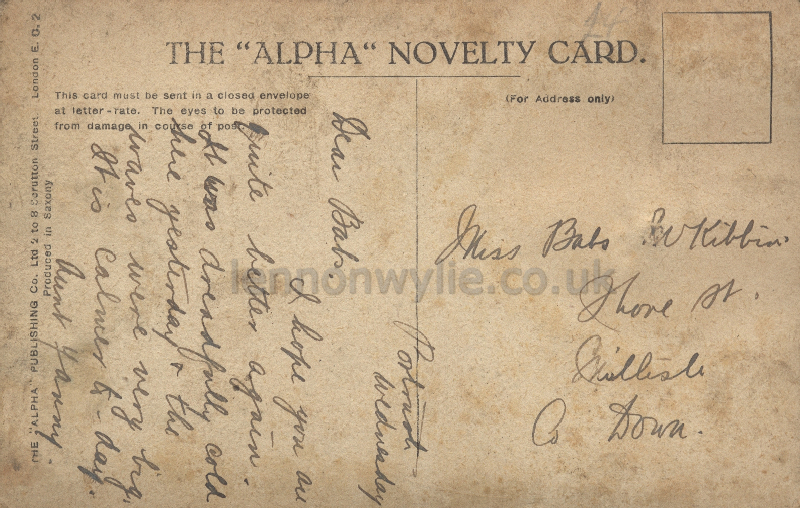 THE "ALPHA" NOVELTY CARD.
This card must be sent in a closed envelope
at letter-rate. The eyes to be protected
from damage in course of post.
(For Address only)
THE "ALPHA" PUBLISHING Co. Ltd 2 to 8 Scrutton Street. London E. C. 2
Produced in Saxony
Portrush
Wednesday
Dear Babs.
I hope you are
quite better again.
It was dreadfully cold
here yesterday & the
waves were very big,
It is calmer to-day.
Aunt
Miss Babs
Shore St.
Millisle
Co Down.
lennonwylie.co.uk